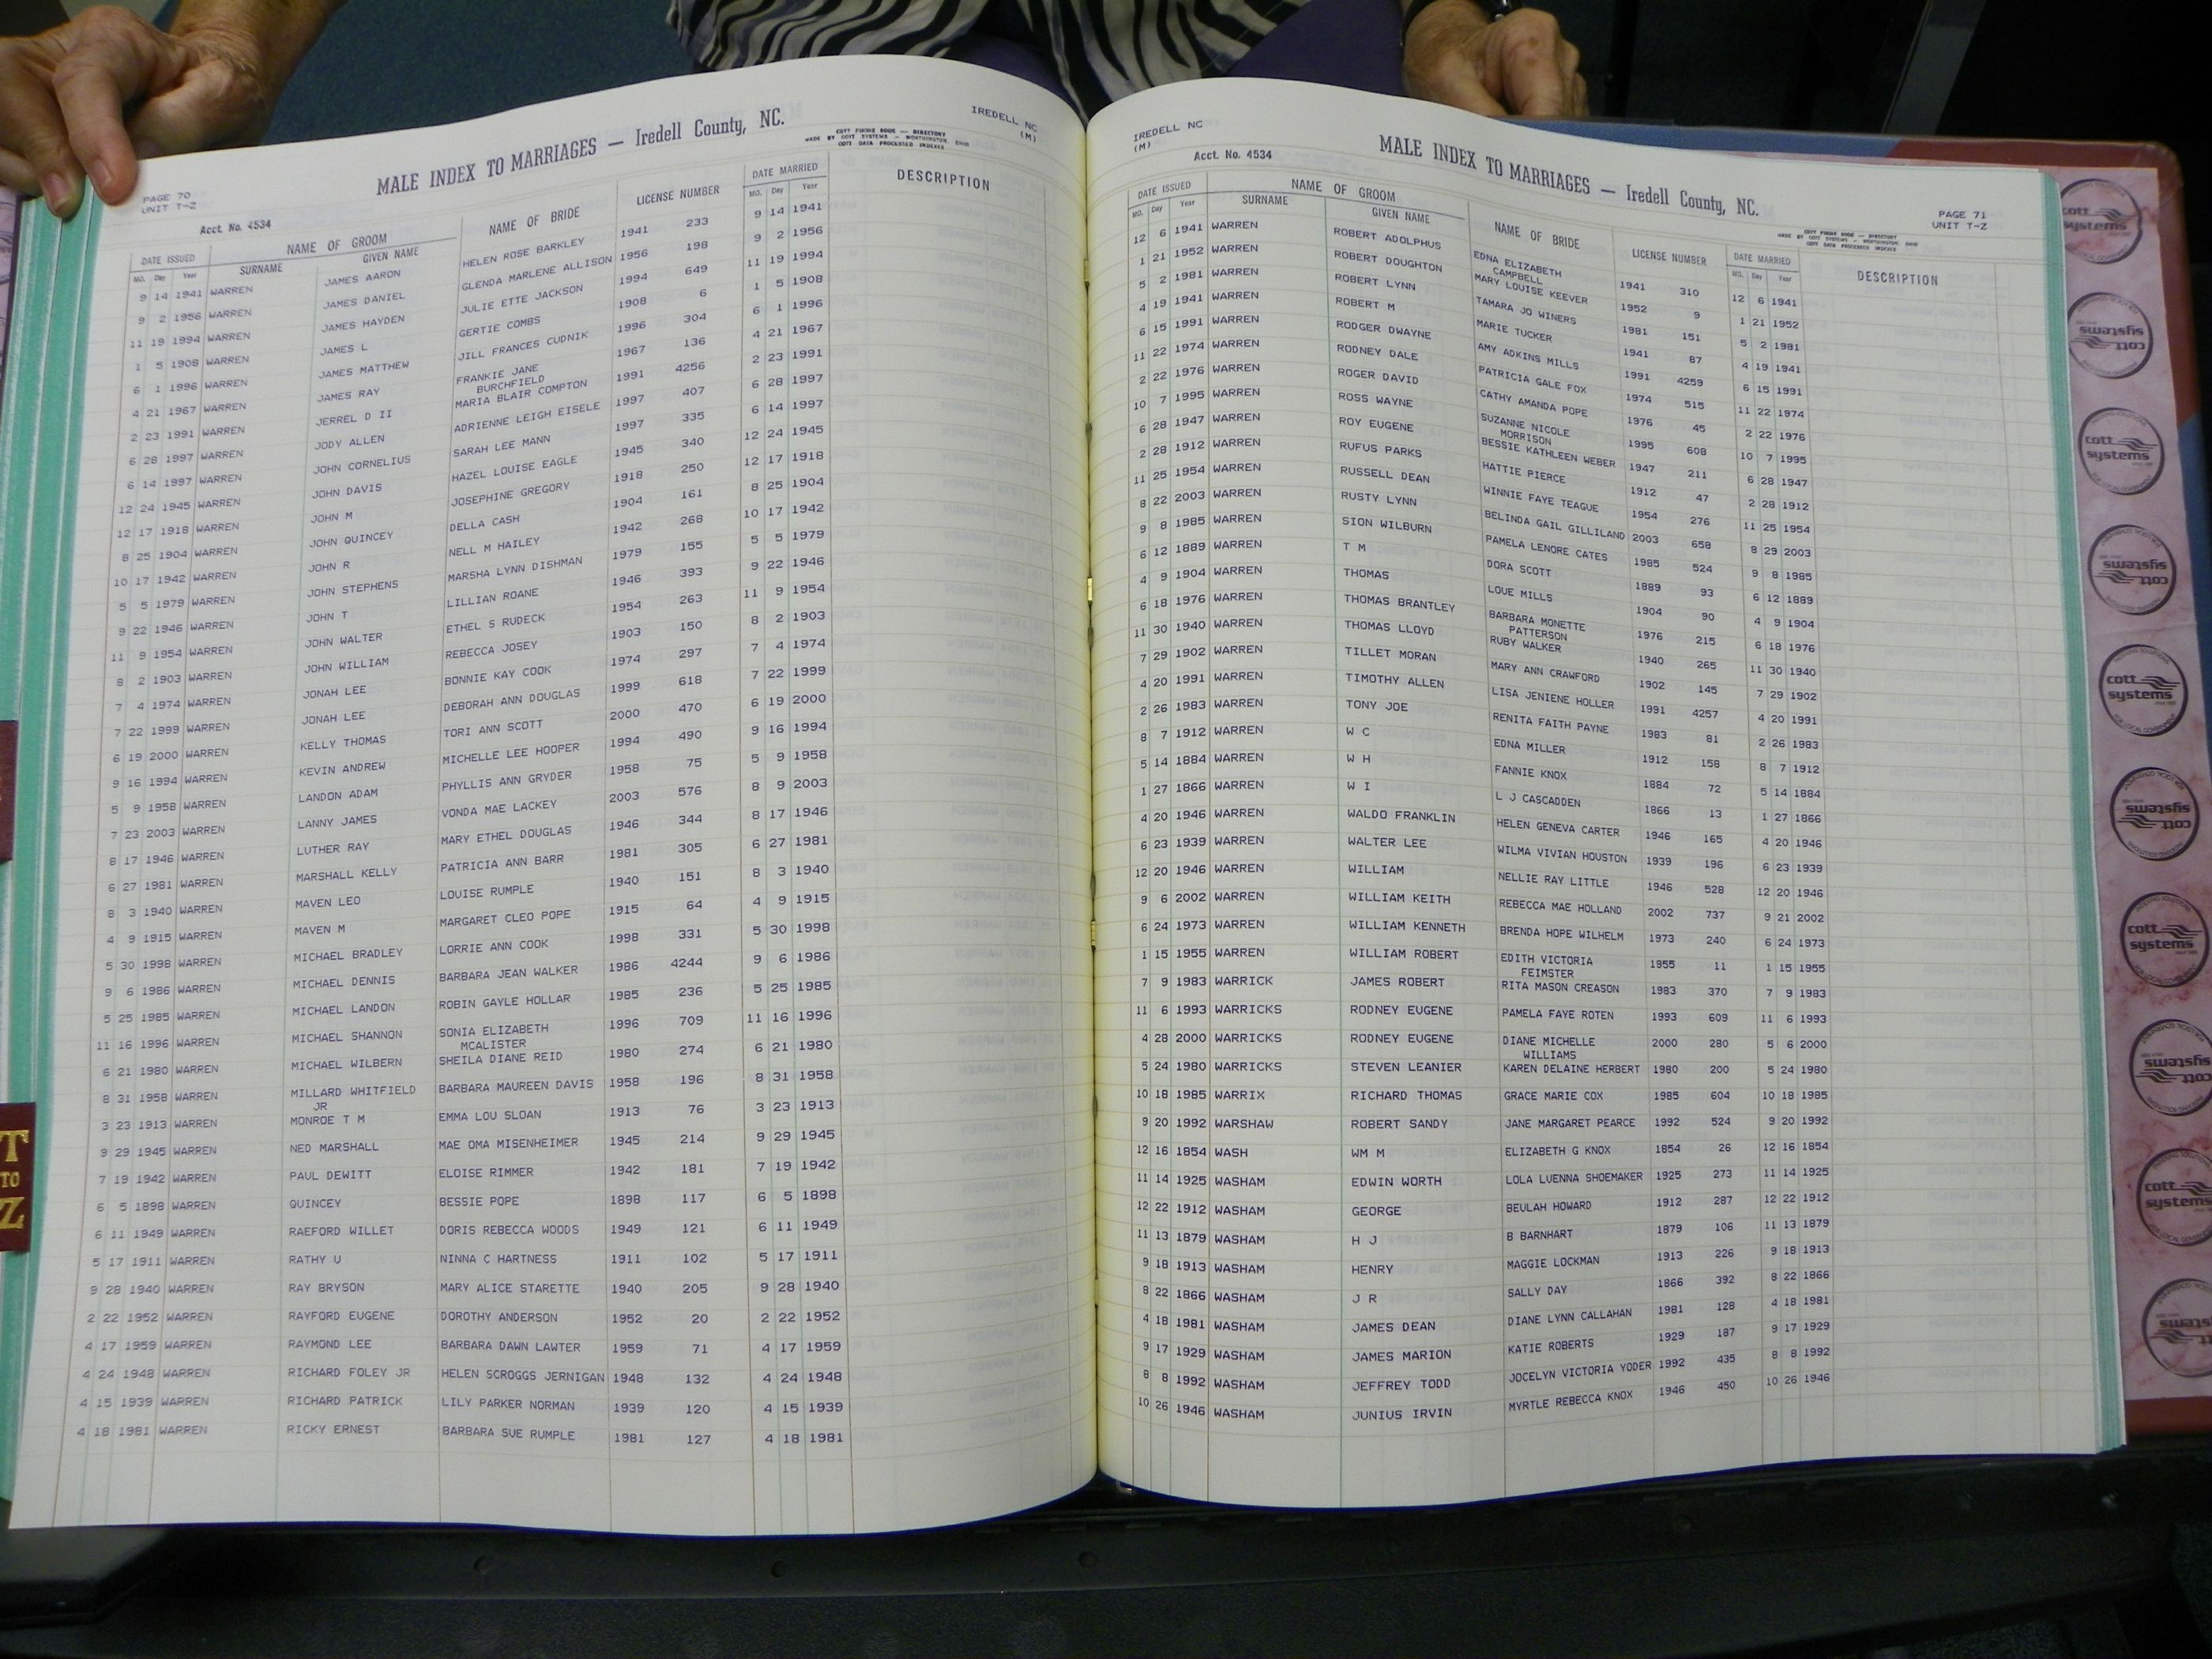 PAGE 70
UNIT T-Z
Acct. No. 4534
MALE INDEX TO MARRIAGES — Iredell County, NC.
COTT PHONE BOOK — DIRECTORY
MADE BY COTT SYSTEMS — WORTHINGTON, OHIO
COTT DATA PROCESSED INDEXES
IREDELL NC
(M)
DATE ISSUED NAME OF GROOM NAME OF BRIDE LICENSE NUMBER DATE MARRIED DESCRIPTION
MO. Day Year SURNAME GIVEN NAME MO. Day Year
9 14 1941 WARREN JAMES AARON HELEN ROSE BARKLEY 1941 233 9 14 1941
9 2 1956 WARREN JAMES DANIEL GLENDA MARLENE ALLISON 1956 198 9 2 1956
11 19 1994 WARREN JAMES HAYDEN JULIE ETTE JACKSON 1994 649 11 19 1994
1 5 1908 WARREN JAMES L GERTIE COMBS 1908 6 1 5 1908
6 1 1996 WARREN JAMES MATTHEW JILL FRANCES CUDNIK 1996 304 6 1 1996
4 21 1967 WARREN JAMES RAY FRANKIE JANE 1967 136 4 21 1967
BURCHFIELD
2 23 1991 WARREN JERREL D II MARIA BLAIR COMPTON 1991 4256 2 23 1991
6 28 1997 WARREN JODY ALLEN ADRIENNE LEIGH EISELE 1997 407 6 28 1997
6 14 1997 WARREN JOHN CORNELIUS SARAH LEE MANN 1997 335 6 14 1997
12 24 1945 WARREN JOHN DAVIS HAZEL LOUISE EAGLE 1945 340 12 24 1945
12 17 1918 WARREN JOHN M JOSEPHINE GREGORY 1918 250 12 17 1918
8 25 1904 WARREN JOHN QUINCEY DELLA CASH 1904 161 8 25 1904
10 17 1942 WARREN JOHN R NELL M HAILEY 1942 268 10 17 1942
5 5 1979 WARREN JOHN STEPHENS MARSHA LYNN DISHMAN 1979 155 5 5 1979
9 22 1946 WARREN JOHN T LILLIAN ROANE 1946 393 9 22 1946
11 9 1954 WARREN JOHN WALTER ETHEL S RUDECK 1954 263 11 9 1954
8 2 1903 WARREN JOHN WILLIAM REBECCA JOSEY 1903 150 8 2 1903
7 4 1974 WARREN JONAH LEE BONNIE KAY COOK 1974 297 7 4 1974
7 22 1999 WARREN JONAH LEE DEBORAH ANN DOUGLAS 1999 618 7 22 1999
6 19 2000 WARREN KELLY THOMAS TORI ANN SCOTT 2000 470 6 19 2000
9 16 1994 WARREN KEVIN ANDREW MICHELLE LEE HOOPER 1994 490 9 16 1994
5 9 1958 WARREN LANDON ADAM PHYLLIS ANN GRYDER 1958 75 5 9 1958
7 23 2003 WARREN LANNY JAMES VONDA MAE LACKEY 2003 576 8 9 2003
8 17 1946 WARREN LUTHER RAY MARY ETHEL DOUGLAS 1946 344 8 17 1946
6 27 1981 WARREN MARSHALL KELLY PATRICIA ANN BARR 1981 305 6 27 1981
8 3 1940 WARREN MAVEN LEO LOUISE RUMPLE 1940 151 8 3 1940
4 9 1915 WARREN MAVEN M MARGARET CLEO POPE 1915 64 4 9 1915
5 30 1998 WARREN MICHAEL BRADLEY LORRIE ANN COOK 1998 331 5 30 1998
9 6 1986 WARREN MICHAEL DENNIS BARBARA JEAN WALKER 1986 4244 9 6 1986
5 25 1985 WARREN MICHAEL LANDON ROBIN GAYLE HOLLAR 1985 236 5 25 1985
11 16 1996 WARREN MICHAEL SHANNON SONIA ELIZABETH 1996 709 11 16 1996
MCALISTER
6 21 1980 WARREN MICHAEL WILBERN SHEILA DIANE REID 1980 274 6 21 1980
8 31 1958 WARREN MILLARD WHITFIELD BARBARA MAUREEN DAVIS 1958 196 8 31 1958
JR
3 23 1913 WARREN MONROE T M EMMA LOU SLOAN 1913 76 3 23 1913
9 29 1945 WARREN NED MARSHALL MAE OMA MISENHEIMER 1945 214 9 29 1945
7 19 1942 WARREN PAUL DEWITT ELOISE RIMMER 1942 181 7 19 1942
6 5 1898 WARREN QUINCEY BESSIE POPE 1898 117 6 5 1898
6 11 1949 WARREN RAEFORD WILLET DORIS REBECCA WOODS 1949 121 6 11 1949
5 17 1911 WARREN RATHY U NINNA C HARTNESS 1911 102 5 17 1911
9 28 1940 WARREN RAY BRYSON MARY ALICE STARETTE 1940 205 9 28 1940
2 22 1952 WARREN RAYFORD EUGENE DOROTHY ANDERSON 1952 20 2 22 1952
4 17 1959 WARREN RAYMOND LEE BARBARA DAWN LAWTER 1959 71 4 17 1959
4 24 1948 WARREN RICHARD FOLEY JR HELEN SCROGGS JERNIGAN 1948 132 4 24 1948
4 15 1939 WARREN RICHARD PATRICK LILY PARKER NORMAN 1939 120 4 15 1939
4 18 1981 WARREN RICKY ERNEST BARBARA SUE RUMPLE 1981 127 4 18 1981
T
TO
Z
IREDELL NC
(M)
Acct. No. 4534
MALE INDEX TO MARRIAGES — Iredell County, NC.
PAGE 71
UNIT T-Z
COTT PHONE BOOK — DIRECTORY
MADE BY COTT SYSTEMS — WORTHINGTON, OHIO
COTT DATA PROCESSED INDEXES
DATE ISSUED NAME OF GROOM NAME OF BRIDE LICENSE NUMBER DATE MARRIED DESCRIPTION
MO. Day Year SURNAME GIVEN NAME MO. Day Year
12 6 1941 WARREN ROBERT ADOLPHUS EDNA ELIZABETH 1941 310 12 6 1941
CAMPBELL
1 21 1952 WARREN ROBERT DOUGHTON MARY LOUISE KEEVER 1952 9 1 21 1952
5 2 1981 WARREN ROBERT LYNN TAMARA JO WINERS 1981 151 5 2 1981
4 19 1941 WARREN ROBERT M MARIE TUCKER 1941 87 4 19 1941
6 15 1991 WARREN RODGER DWAYNE AMY ADKINS MILLS 1991 4259 6 15 1991
11 22 1974 WARREN RODNEY DALE PATRICIA GALE FOX 1974 515 11 22 1974
2 22 1976 WARREN ROGER DAVID CATHY AMANDA POPE 1976 45 2 22 1976
10 7 1995 WARREN ROSS WAYNE SUZANNE NICOLE 1995 608 10 7 1995
MORRISON
6 28 1947 WARREN ROY EUGENE BESSIE KATHLEEN WEBER 1947 211 6 28 1947
2 28 1912 WARREN RUFUS PARKS HATTIE PIERCE 1912 47 2 28 1912
11 25 1954 WARREN RUSSELL DEAN WINNIE FAYE TEAGUE 1954 276 11 25 1954
8 22 2003 WARREN RUSTY LYNN BELINDA GAIL GILLILAND 2003 658 8 29 2003
9 8 1985 WARREN SION WILBURN PAMELA LENORE CATES 1985 524 9 8 1985
6 12 1889 WARREN T M DORA SCOTT 1889 93 6 12 1889
4 9 1904 WARREN THOMAS LOUE MILLS 1904 90 4 9 1904
6 18 1976 WARREN THOMAS BRANTLEY BARBARA MONETTE 1976 215 6 18 1976
PATTERSON
11 30 1940 WARREN THOMAS LLOYD RUBY WALKER 1940 265 11 30 1940
7 29 1902 WARREN TILLET MORAN MARY ANN CRAWFORD 1902 145 7 29 1902
4 20 1991 WARREN TIMOTHY ALLEN LISA JENIENE HOLLER 1991 4257 4 20 1991
2 26 1983 WARREN TONY JOE RENITA FAITH PAYNE 1983 81 2 26 1983
8 7 1912 WARREN W C EDNA MILLER 1912 158 8 7 1912
5 14 1884 WARREN W H FANNIE KNOX 1884 72 5 14 1884
1 27 1866 WARREN W I L J CASCADDEN 1866 13 1 27 1866
4 20 1946 WARREN WALDO FRANKLIN HELEN GENEVA CARTER 1946 165 4 20 1946
6 23 1939 WARREN WALTER LEE WILMA VIVIAN HOUSTON 1939 196 6 23 1939
12 20 1946 WARREN WILLIAM NELLIE RAY LITTLE 1946 528 12 20 1946
9 6 2002 WARREN WILLIAM KEITH REBECCA MAE HOLLAND 2002 737 9 21 2002
6 24 1973 WARREN WILLIAM KENNETH BRENDA HOPE WILHELM 1973 240 6 24 1973
1 15 1955 WARREN WILLIAM ROBERT EDITH VICTORIA 1955 11 1 15 1955
FEIMSTER
7 9 1983 WARRICK JAMES ROBERT RITA MASON CREASON 1983 370 7 9 1983
11 6 1993 WARRICKS RODNEY EUGENE PAMELA FAYE ROTEN 1993 609 11 6 1993
4 28 2000 WARRICKS RODNEY EUGENE DIANE MICHELLE 2000 280 5 6 2000
WILLIAMS
5 24 1980 WARRICKS STEVEN LEANIER KAREN DELAINE HERBERT 1980 200 5 24 1980
10 18 1985 WARRIX RICHARD THOMAS GRACE MARIE COX 1985 604 10 18 1985
9 20 1992 WARSHAW ROBERT SANDY JANE MARGARET PEARCE 1992 524 9 20 1992
12 16 1854 WASH WM M ELIZABETH G KNOX 1854 26 12 16 1854
11 14 1925 WASHAM EDWIN WORTH LOLA LUENNA SHOEMAKER 1925 273 11 14 1925
12 22 1912 WASHAM GEORGE BEULAH HOWARD 1912 287 12 22 1912
11 13 1879 WASHAM H J B BARNHART 1879 106 11 13 1879
9 18 1913 WASHAM HENRY MAGGIE LOCKMAN 1913 226 9 18 1913
8 22 1866 WASHAM J R SALLY DAY 1866 392 8 22 1866
4 18 1981 WASHAM JAMES DEAN DIANE LYNN CALLAHAN 1981 128 4 18 1981
9 17 1929 WASHAM JAMES MARION KATIE ROBERTS 1929 187 9 17 1929
8 8 1992 WASHAM JEFFREY TODD JOCELYN VICTORIA YODER 1992 435 8 8 1992
10 26 1946 WASHAM JUNIUS IRVIN MYRTLE REBECCA KNOX 1946 450 10 26 1946
cott
systems
cott
systems
cott
systems
cott
systems
cott
systems
cott
systems
cott
systems
cott
systems
cott
systems